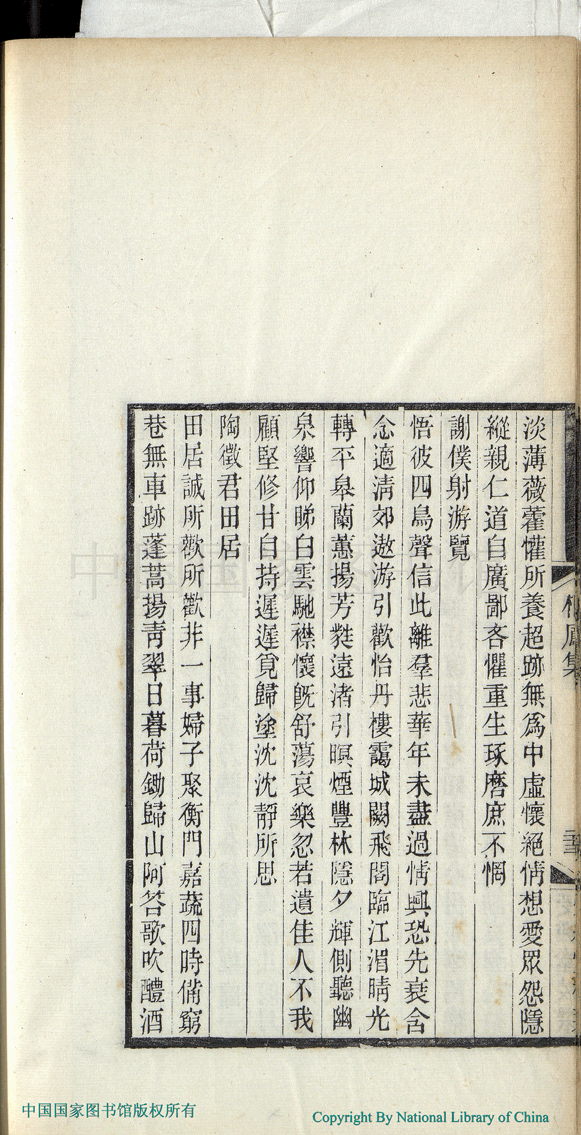 淡薄薇藿懽所養超跡無爲中虛懷絕情想愛眾怨隱
縱親仁道自廣鄙吝懼重生琢磨庶不惘
謝僕射游覽
悟彼四鳥聲信此離羣悲華年未盡過情興恐先衰含
念適清郊遨游引歡怡丹樓靄城闕飛閣臨江湄晴光
轉平皋蘭蕙揚芳蕤遠渚引暝煙豐林隱夕輝側聽幽
泉響仰睇白雲馳襟懷旣舒蕩哀樂忽若遺佳人不我
顧堅修甘自持遲遲覓歸塗沈沈靜所思
陶徵君田居
田居誠所歡所歡非一事婦子聚衡門嘉蔬四時備窮
巷無車跡蓬蒿揚靑翠日暮荷鋤歸山阿答歌吹醴酒
集
中国国家图书馆版权所有
Copyright By National Library of China